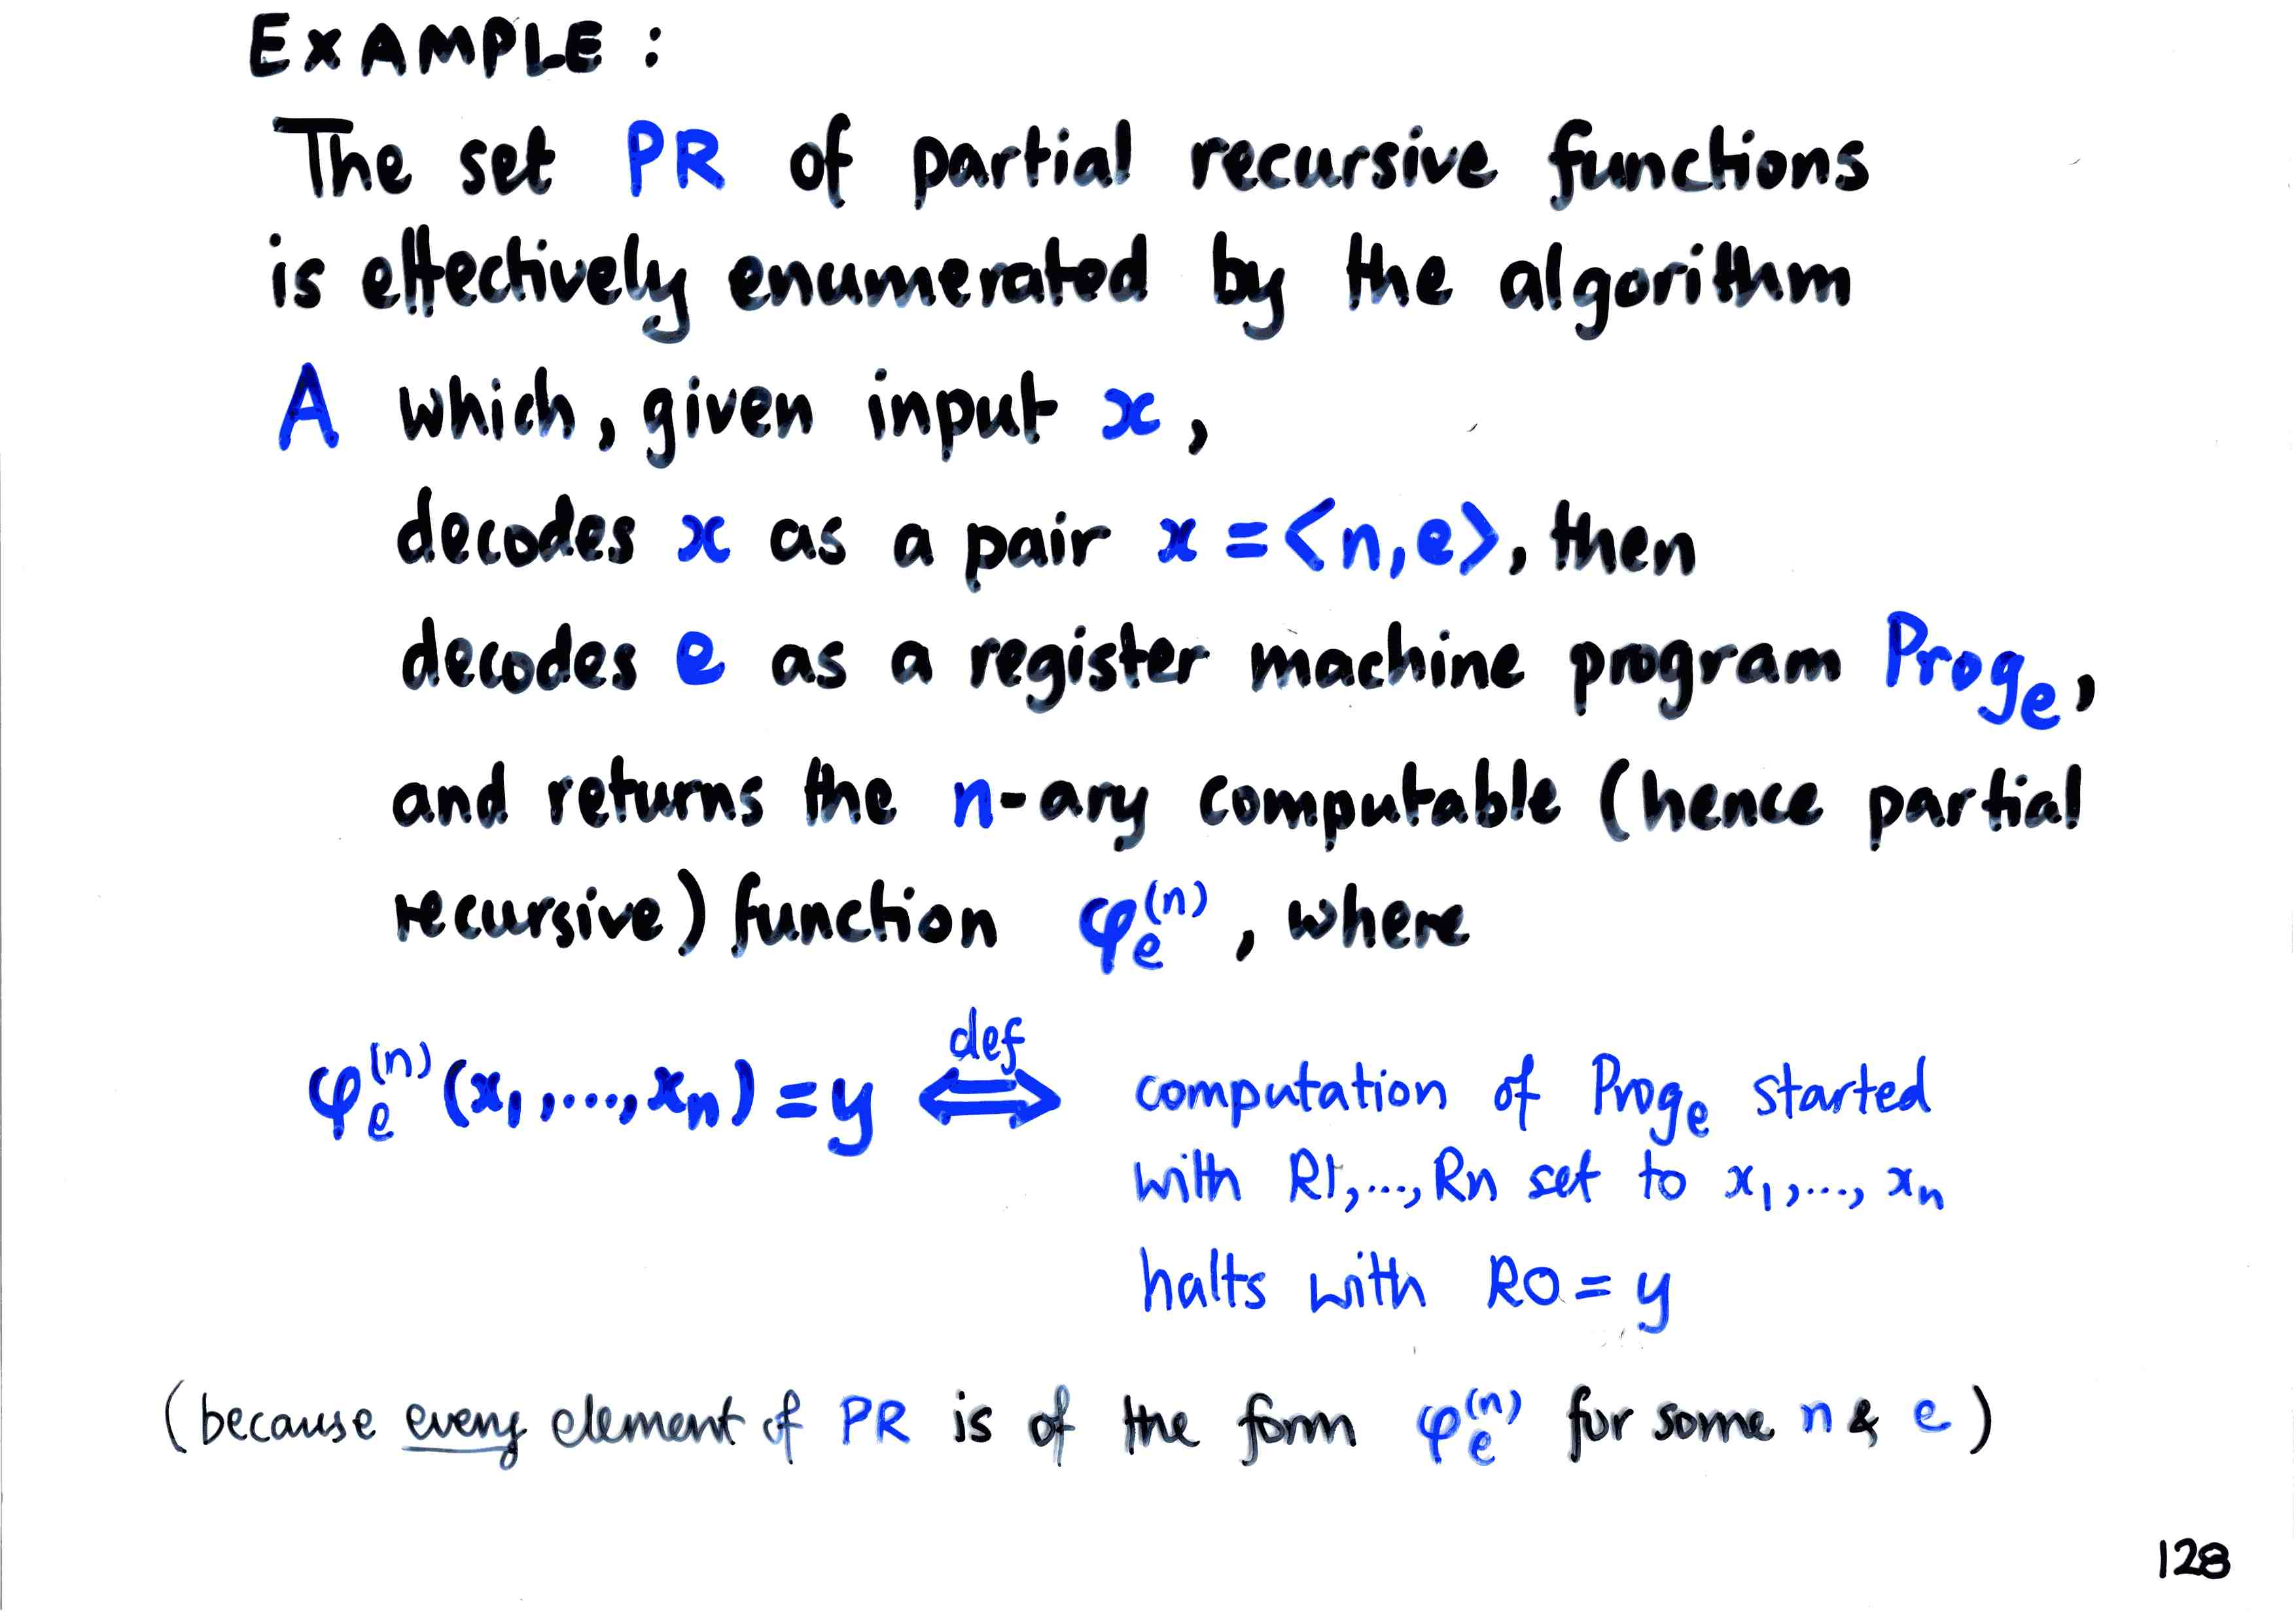 EXAMPLE :
The set PR of partial recursive functions
is effectively enumerated by the algorithm
A which, given input x,
decodes x as a pair x = <n,e>, then
decodes e as a register machine program Prog_e,
and returns the n-ary computable (hence partial
recursive) function φ_e^(n), where
def
φ_e^(n) (x₁,...,xₙ) = y ⟺ computation of Prog_e started
with R1,...,Rn set to x₁,..., xₙ
halts with R0 = y
(because every element of PR is of the form φ_e^(n) for some n & e)
128